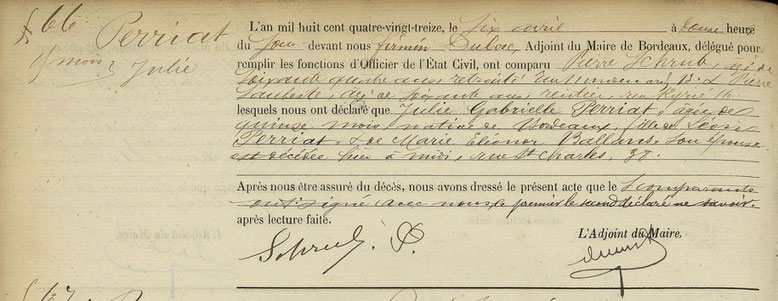 66
Perriat
Julie
mois
L'an mil huit cent quatre-vingt-treize, le six avril à douze heure
du jour devant nous firmin Dubosc, Adjoint du Maire de Bordeaux, délégué pour
remplir les fonctions d'Officier de l'État Civil, ont comparu Pierre Schrub, âgé de
soixante quatre ans, retraité Pierre
âgé de soixante ans, rentier, rue
lesquels nous ont déclaré que Julie Gabrielle Perriat, âgée de
quinze mois, native de Bordeaux, fille de Léon
Perriat, & de Marie Eléonor Ballans, son épouse
est décédée hier à midi, rue St Charles, 37.
Après nous être assuré du décès, nous avons dressé le présent acte que le s comparants
ont signé avec nous le premier le second déclaré ne savoir
après lecture faite.
L'Adjoint du Maire.
Schrub. P.